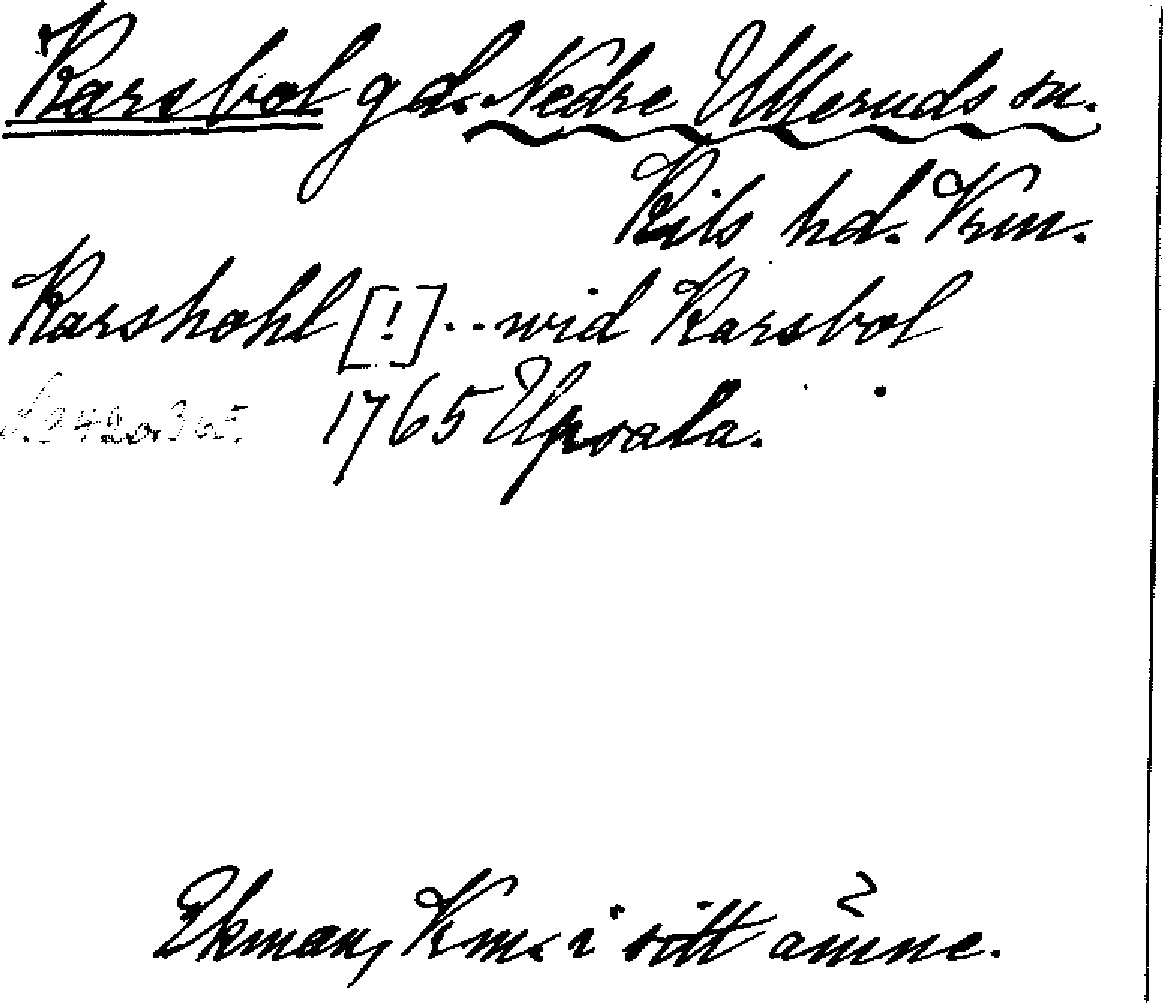 Karsbol gd. Nedre Ulleruds sn.
Kils hd. Vrm.
Karshohl [!]... wid Karsbol
1765 Upsala.
Ekman, Vm. i sitt ämne.